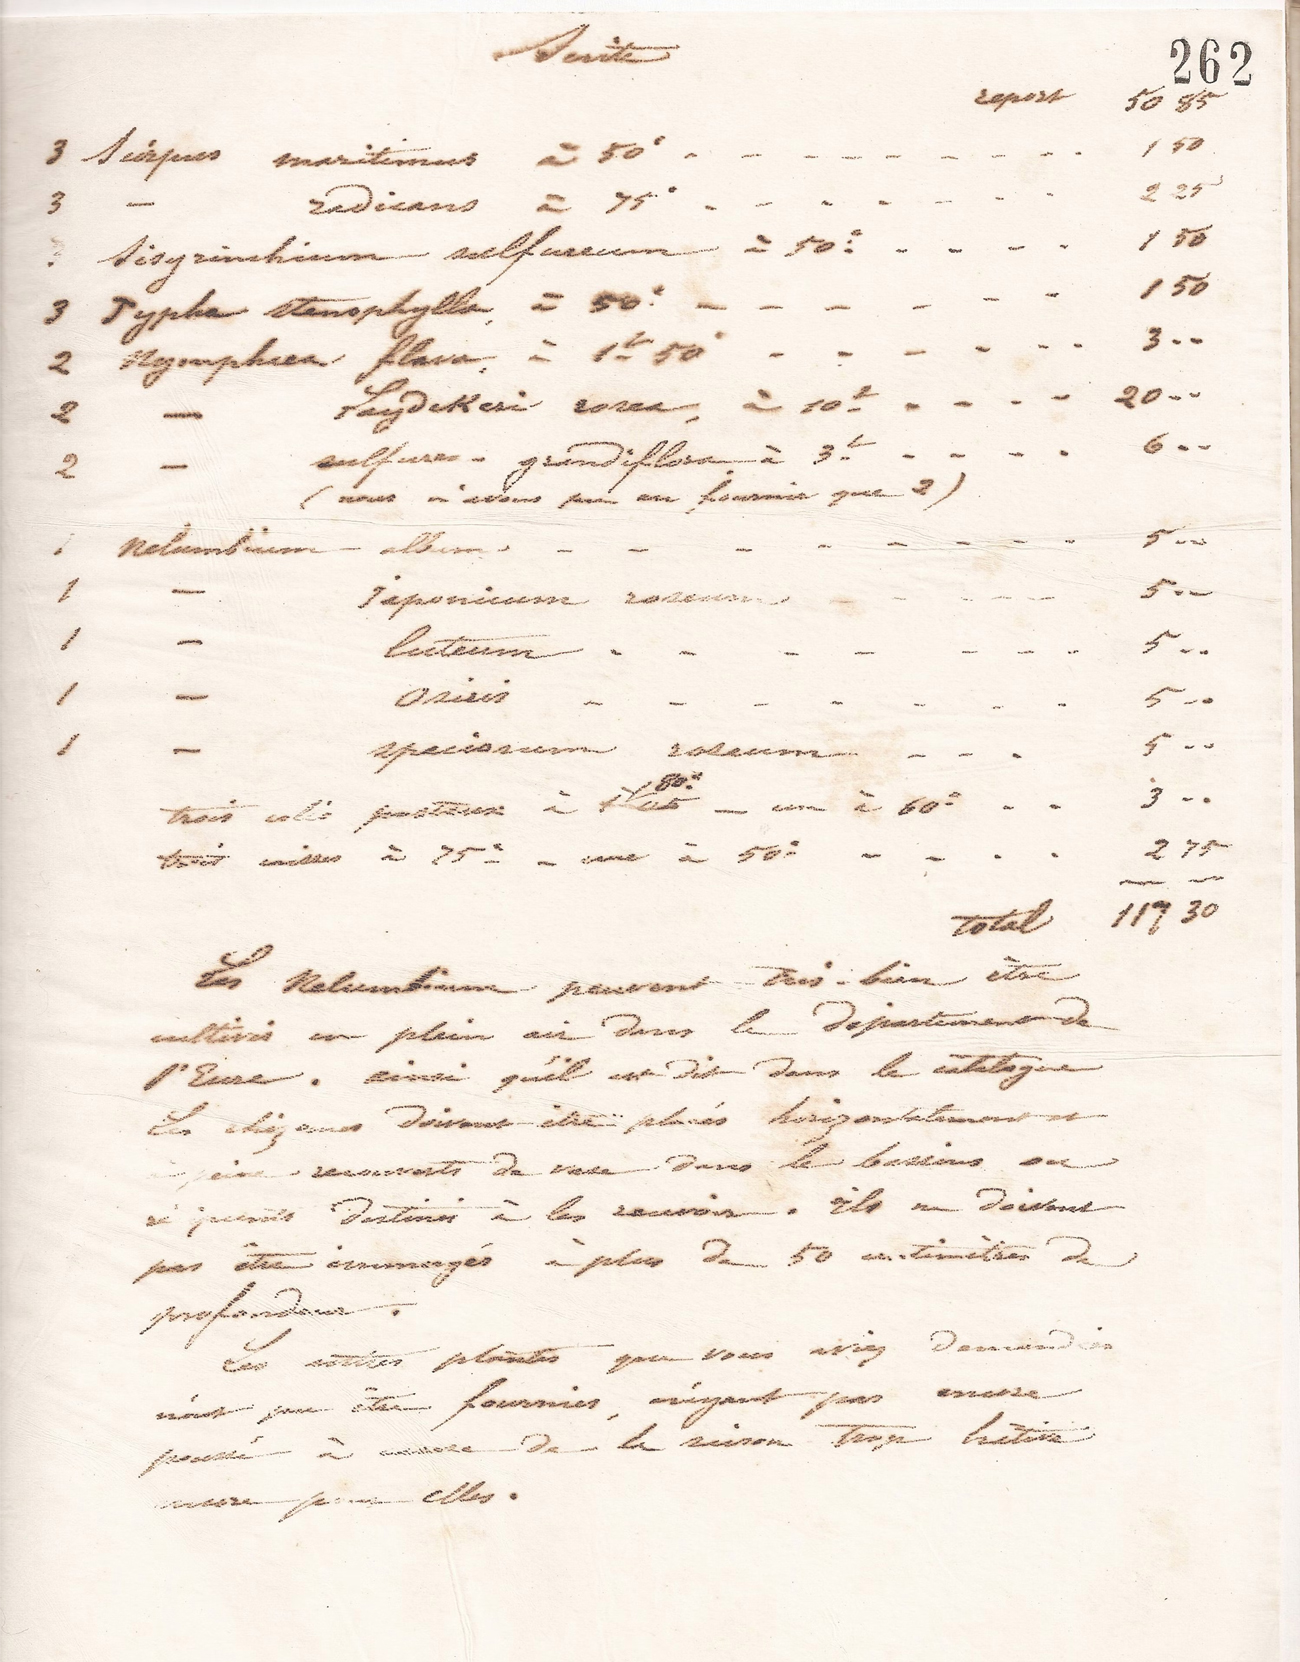 Suite
262
report 50 85
3 Scirpus maritimus à 50c - - - - - - - - - 1 50
3 — radicans à 75c - - - - - - - 2 25
Sisyrinchium sulfureum à 50c - - - - 1 50
3 Typha stenophylla, à 50c - - - - - - 1 50
2 Nymphaea flava, à 1f 50c - - - - - - 3 - -
2 — Laydekeri rosea, à 10f - - - - 20 - -
2 — sulfurea-grandiflora à 3f - - - - 6 - -
(nous n'avons pu en fournir que 2)
1 Nelumbium album - - - - - - - - - 5 - -
1 — Japonicum roseum - - - - - 5 - -
1 — luteum - - - - - - - - 5 - -
1 — Osiris - - - - - - - 5 - -
1 — speciosum roseum - - - 5 - -
80c
trois colis postaux à — un à 60c - - 3 - -
trois caisses à 75c - une à 50c - - - - 2 75
total 117 30
Les Nelumbium peuvent très-bien être
cultivés en plein air dans le département de
l'Eure. ainsi qu'il est dit dans le catalogue
Les rhizomes doivent être placés horizontalement et
à peine recouverts de vase dans le bassins ou
récipients destinés à les recevoir. Ils ne doivent
pas être immergés à plus de 50 centimètres de
profondeur.
Les autres plantes que vous aviez demandées
n'ont pu être fournies, n'ayant pas encore
poussé à cause de la saison trop hâtive
encore pour elles.